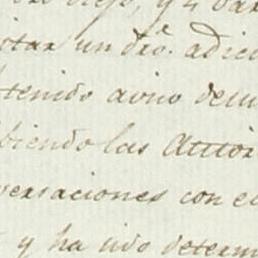 viejo, y q
istar un dro. adici
tenido aviso de un
biendo las Autor
versaciones con el
y ha sido determ